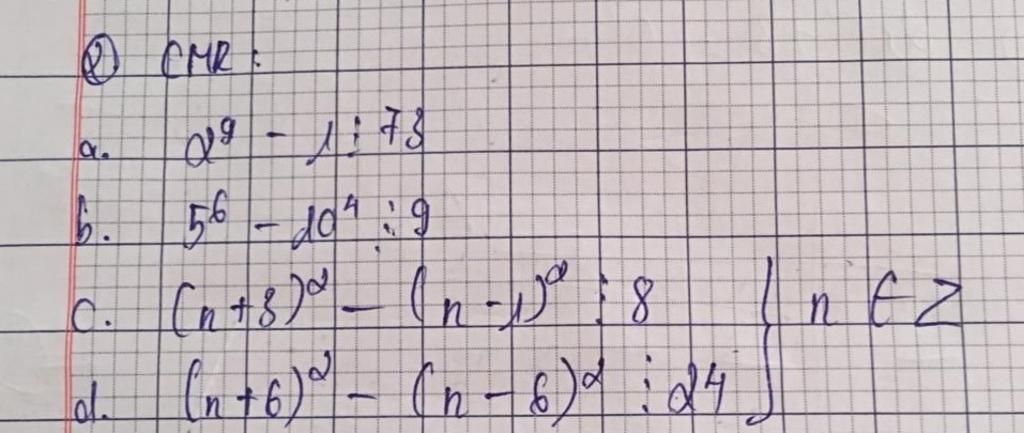 ② CMR:
a. 2⁹ - 1 ⋮ 73
b. 5⁶ - 10⁴ ⋮ 9
c. (n+3)² - (n-1)² ⋮ 8 } n ∈ Z
d. (n+6)² - (n-6)² ⋮ 24